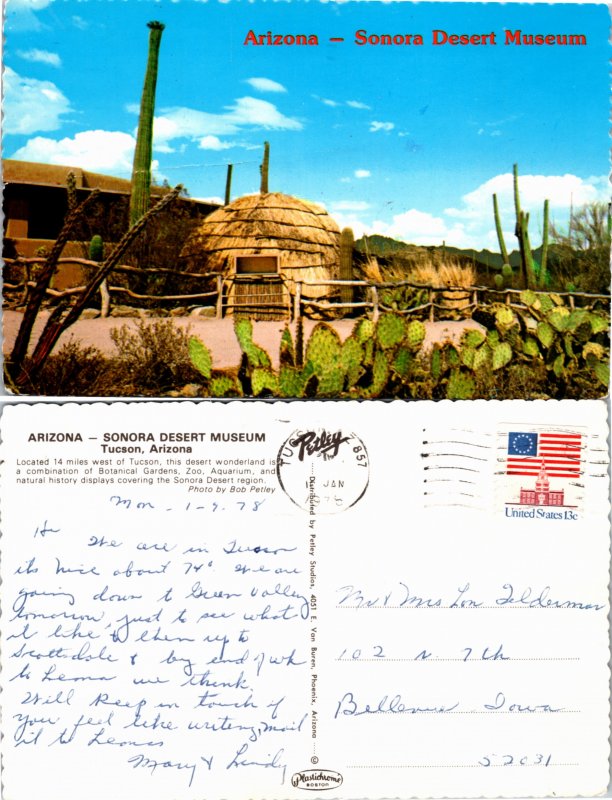 Arizona – Sonora Desert Museum
ARIZONA – SONORA DESERT MUSEUM
Tucson, Arizona
Located 14 miles west of Tucson, this desert wonderland is
a combination of Botanical Gardens, Zoo, Aquarium, and
natural history displays covering the Sonora Desert region.
Photo by Bob Petley
Mon - 1-9. 78
Hi
We are in Tucson
its nice about 74° We are
going down to Green Valley
tomorrow, just to see what
it like & then up to
Scottsdale & by end of wk
to Leona we think.
Will keep in touch if
you feel like writing, mail
it to Leonas
Mary & Lindy
Petley
Distributed by Petley Studios, 4051 E. Van Buren, Phoenix, Arizona ©
Plastichrome
BOSTON
857
JAN
United States 13c
Mr & Mrs Lon Telderman
102 N. 7th
Bellevue Iowa
52031